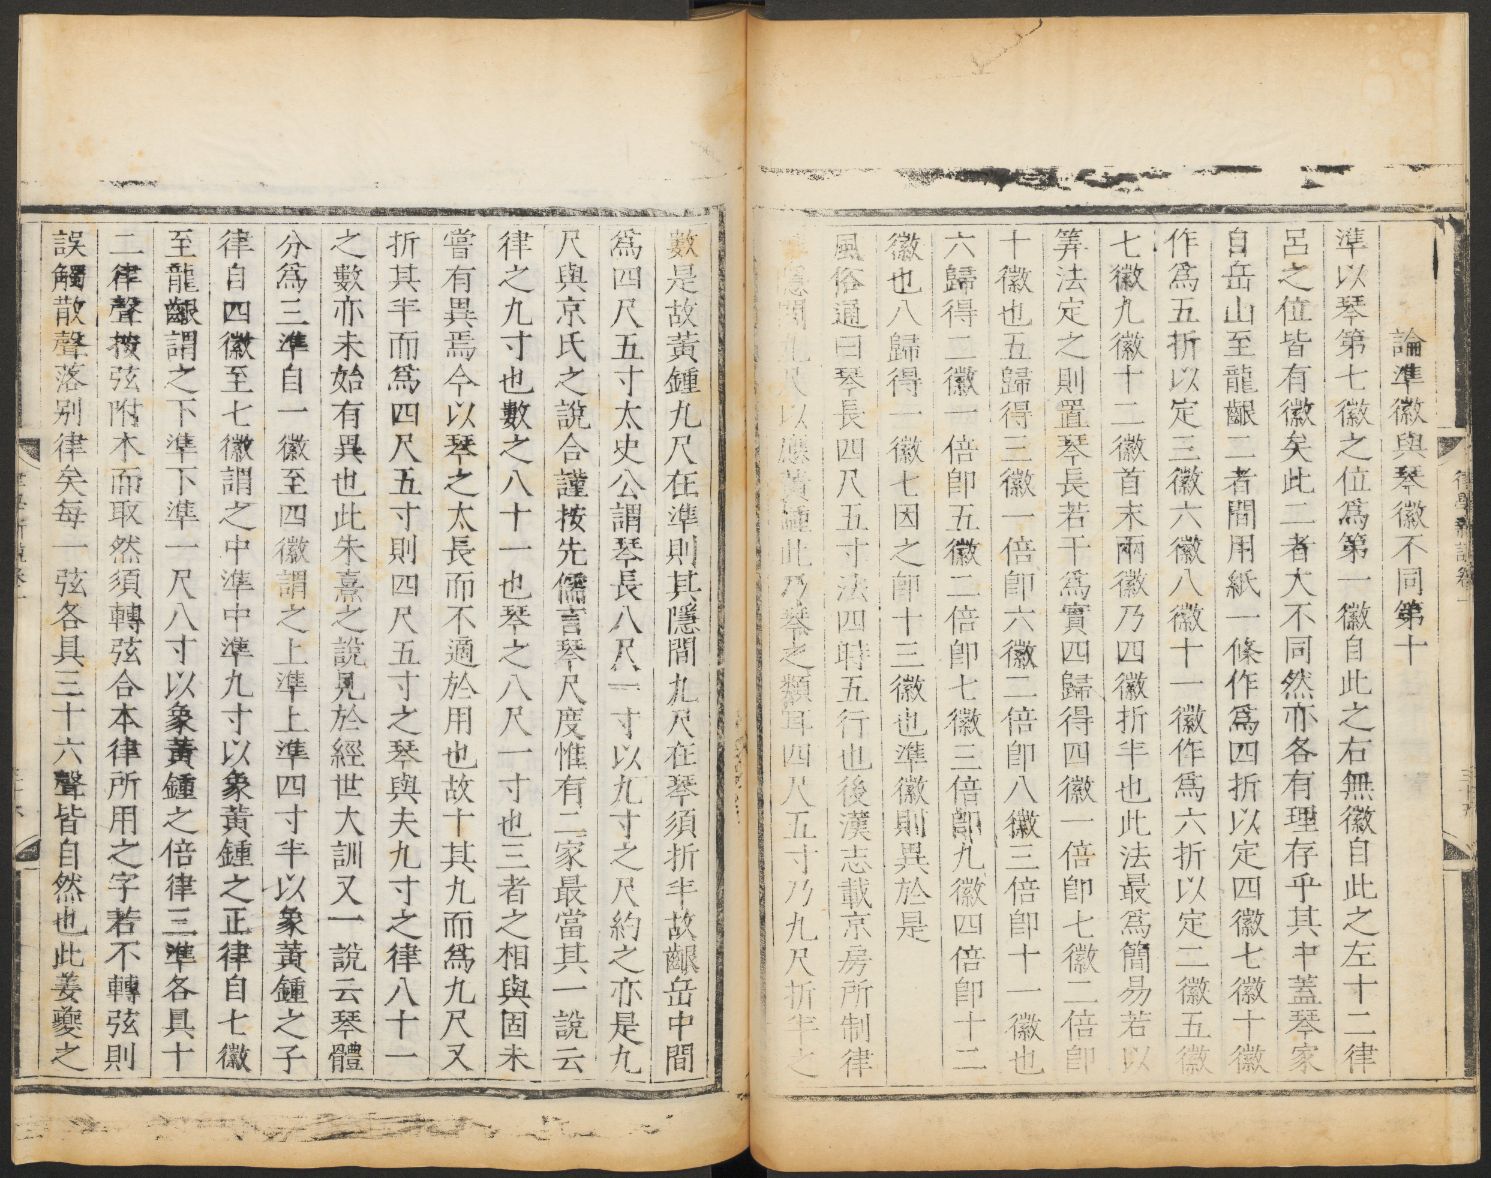 論準徽與琴徽不同第十
準以琴第七徽之位爲第一徽自此之右無徽自此之左十二律
呂之位皆有徽矣此二者大不同然亦各有理存乎其中蓋琴家
自岳山至龍齦二者間用紙一條作爲四折以定四徽七徽十徽
作爲五折以定三徽六徽八徽十一徽作爲六折以定二徽五徽
七徽九徽十二徽首末兩徽乃四徽折半也此法最爲簡易若以
筭法定之則置琴長若干爲實四歸得四徽一倍卽七徽二倍卽
十徽也五歸得三徽一倍卽六徽二倍卽八徽三倍卽十一徽也
六歸得二徽一倍卽五徽二倍卽七徽三倍卽九徽四倍卽十二
徽也八歸得一徽七因之卽十三徽也準徽則異於是
風俗通曰琴長四尺五寸法四時五行也後漢志載京房所制律
準隱間九尺以應黃鍾此乃琴之類耳四尺五寸乃九尺折半之
數是故黃鍾九尺在準則其隱間九尺在琴須折半故齦岳中間
爲四尺五寸太史公謂琴長八尺一寸以九寸之尺約之亦是九
尺與京氏之說合謹按先儒言琴尺度惟有二家最當其一說云
律之九寸也數之八十一也琴之八尺一寸也三者之相與固未
嘗有異焉今以琴之太長而不適於用也故十其九而爲九尺又
折其半而爲四尺五寸則四尺五寸之琴與夫九寸之律八十一
之數亦未始有異也此朱熹之說見於經世大訓又一說云琴體
分爲三準自一徽至四徽謂之上準上準四寸半以象黃鍾之子
律自四徽至七徽謂之中準中準九寸以象黃鍾之正律自七徽
至龍齦謂之下準下準一尺八寸以象黃鍾之倍律三準各具十
二律聲按弦附木而取然須轉弦合本律所用之字若不轉弦則
誤觸散聲落別律矣每一弦各具三十六聲皆自然也此姜夔之